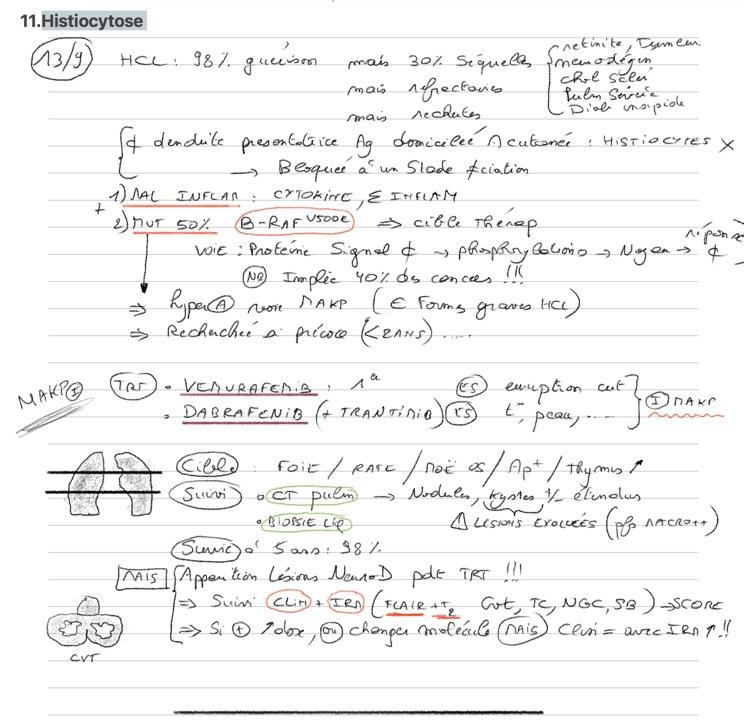 11.Histiocytose
13/9 HCL : 98% guérison mais 30% Séquelles { retinite, Tumeur
mais réfractaires neurodégén
mais rechutes chol sclér
Pulm Sévère
Diab insipide
{ ¢ dendrite presentatrice Ag domiciliée cutanée : HISTIOCYTES X
→ Bloquée à un Stade
1) MAL INFLAM : CYTOKINE, Σ INFLAM
+
2) MUT 50% B-RAF V500E ⇒ cible Thérap
VOIE : Protéine Signal ¢ → phosphorylations → Noyau → réponse ¢
NB Implié 40% des cancers !!!
⇒ hyper A voie MAKP (∈ Formes graves HCL)
⇒ Recherchée si précoce (<2ANS) ....
MAKP I TRT • VEMURAFENIB : 1° ES éruption cut } I MAKP
• DABRAFENIB (+ TRANTINIB) ES t- peau, ....
Cible : FOIE / RATE / MOË OS / Ap+ / Thymus ↗
Suivi • CT pulm → Nodules, kystes +/- étendus
• BIOPSIE LIQ ⚠ LESIONS EVOLUÉES (pfs MACRO++)
Survie à 5 ans : 98%
MAIS { Apparition Lésions NeuroD pdt TRT !!!
⇒ Suivi CLIN + IRM (FLAIR + T2 Cvt, TC, NGC, SB) → SCORE
⇒ Si + ↑ dose, ou changer molécule MAIS Clin = avec IRM ↑ !!
CVT